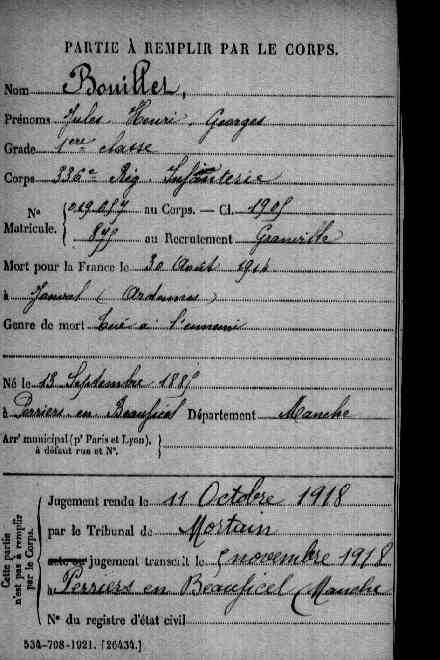 PARTIE À REMPLIR PAR LE CORPS.
Nom Bouillet,
Prénoms Jules Henri Georges
Grade 1ère classe
Corps 336e Rég. Infanterie
N° Matricule. { 019.057 au Corps. — Cl. 1905
875 au Recrutement Granville
Mort pour la France le 30 Août 1914
à (Ardennes)
Genre de mort tué à l'ennemi
Né le 13 Septembre 1885
à Perriers en Beauficel Département Manche
Arr' municipal (p' Paris et Lyon), }
à défaut rue et N°.
Cette partie
n'est pas à remplir
par le Corps.
Jugement rendu le 11 Octobre 1918
par le Tribunal de Mortain
acte ou jugement transcrit le 5 novembre 1918
à Perriers en Beauficel (Manche
N° du registre d'état civil
534-708-1921. [26434.]